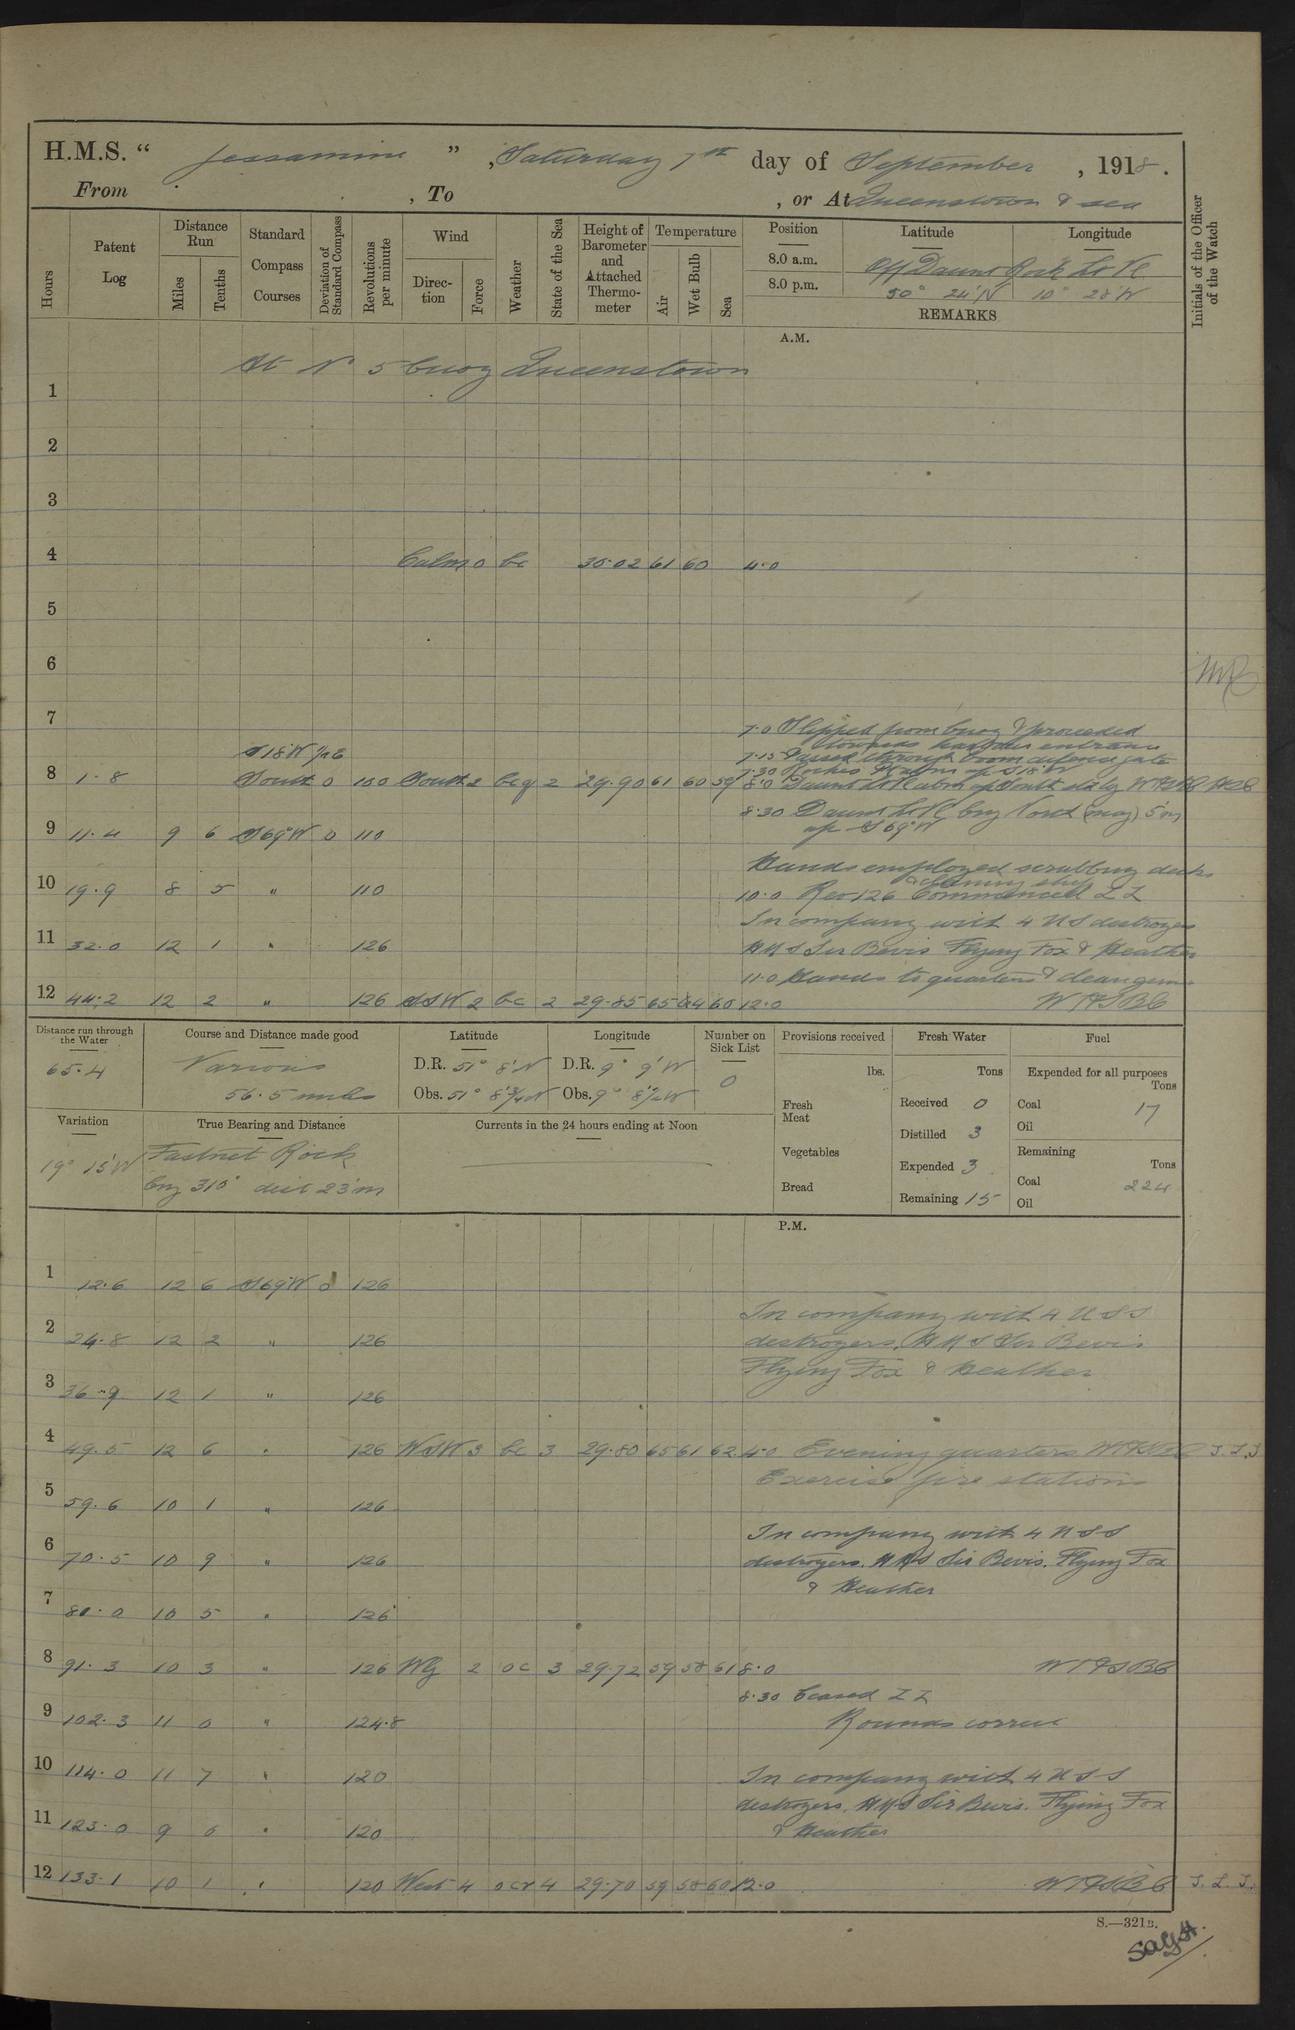 H.M.S. " Jessamine ", Saturday 7th day of September, 1918.
From , To , or At Queenstown & sea
Hours
Patent Log
Distance Run
Miles
Tenths
Standard Compass Courses
Deviation of Standard Compass
Revolutions per minute
Wind
Direction
Force
Weather
State of the Sea
Height of Barometer and Attached Thermometer
Temperature
Air
Wet Bulb
Sea
Position
8.0 a.m.
8.0 p.m.
Latitude
Longitude
Off Daunt Rock Lt Vl
50° 24'N 10° 28'W
REMARKS
Initials of the Officer of the Watch
A.M.
At No 5 buoy Queenstown
1
2
3
4 Calm 0 bc 30.02 61 60 4.0
5
6
7
7.0 Slipped from buoy & proceeded
towards harbour entrance
S18W
7.15 Passed through boom defence gate
7.30
8 1.8 South 0 100 South 2 bcq 2 29.90 61 60 59 8.0 Daunt Lt Vl abm
8.30 Daunt Lt Vl brg North (mag) 5'm
9 11.4 9 6 S69W 0 110 a/c S69W
Hands employed scrubbing decks
& cleaning ship
10 19.9 8 5 " 110 10.0 Rev 126 Commenced ZZ
In company with 4 US destroyers
11 32.0 12 1 " 126 HMS Sir Bevis Flying Fox & Heather
11.0 Hands to quarters & clean guns
12 44.2 12 2 " 126 SSW 2 bc 2 29.85 65 64 60 12.0
Distance run through the Water
65.4
Course and Distance made good
Various
56.5 miles
Latitude
D.R. 51° 8'N
Obs. 51° 8'3/4N
Longitude
D.R. 9° 9'W
Obs. 9° 8'1/2W
Number on Sick List
0
Provisions received
lbs.
Fresh Meat
Vegetables
Bread
Fresh Water
Tons
Received 0
Distilled 3
Expended 3
Remaining 15
Fuel
Expended for all purposes
Tons
Coal 17
Oil
Remaining
Tons
Coal 224
Oil
Variation
19° 15'W
True Bearing and Distance
Fastnet Rock
brg 310° dist 23'm
Currents in the 24 hours ending at Noon
P.M.
1 12.6 12 6 S69W 0 126
In company with 4 USS
2 24.8 12 2 " 126 destroyers. HMS Sir Bevis
Flying Fox & Heather
3 36.9 12 1 " 126
4 49.5 12 6 " 126 WSW 3 bc 3 29.80 65 61 62 4.0 Evening quarters
Exercise fire stations
5 59.6 10 1 " 126
In company with 4 USS
6 70.5 10 9 " 126 destroyers. HMS Sir Bevis. Flying Fox
& Heather
7 81.0 10 5 " 126
8 91.3 10 3 " 126 2 oc 3 29.72 59 58 61 8.0
8.30 Ceased ZZ
9 102.3 11 0 " 124.8 Rounds correct
10 114.0 11 7 " 120 In company with 4 USS
destroyers. HMS Sir Bevis. Flying Fox
11 123.0 9 0 " 120 & Heather
12 133.1 10 1 " 120 West 4 ocr 4 29.70 59 58 60 12.0
S.—321B.